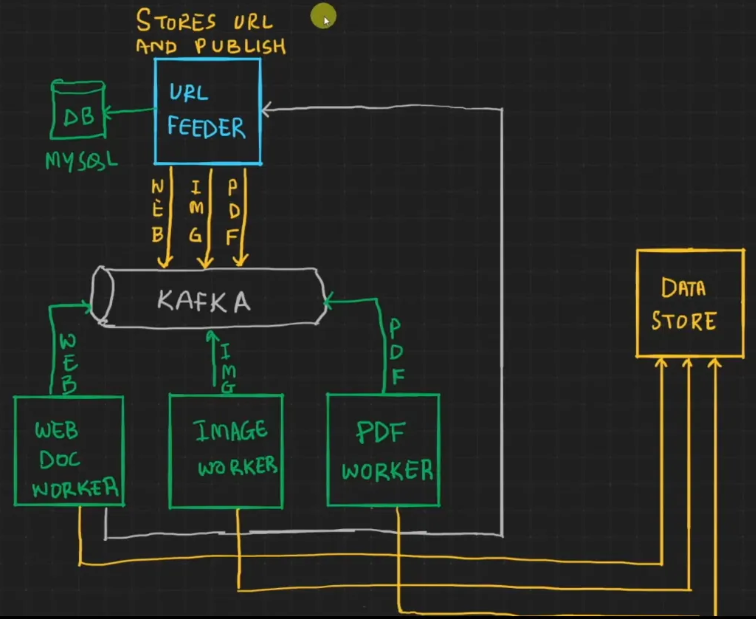 STORES URL
AND PUBLISH
URL
FEEDER
DB
MYSQL
WEB
IMG
PDF
KAFKA
WEB
IMG
PDF
DATA
STORE
WEB
DOC
WORKER
IMAGE
WORKER
PDF
WORKER